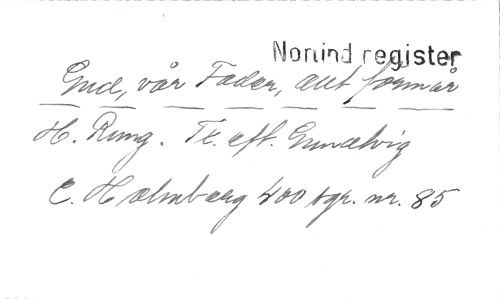 Nonind register
Gud, vår Fader, allt förmår
H. Rung. Tx. eft. Grundtvig
C. Holmberg 400 sgr. nr. 85